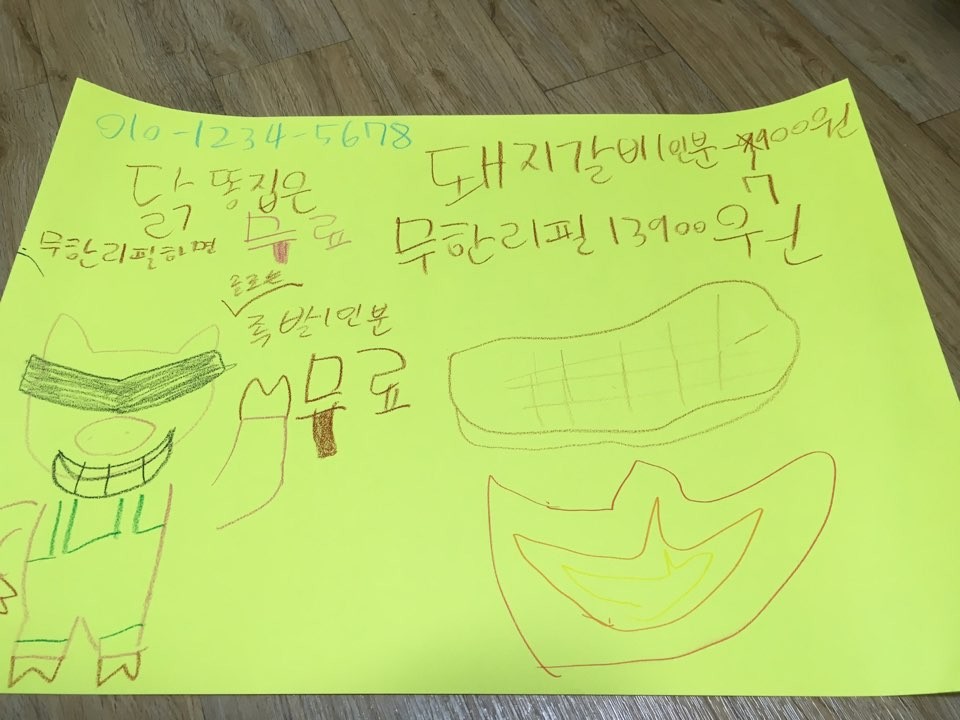 010-1234-5678
돼지갈비1인분 7900원
무한리필 13900원
닭똥집은
무한리필하면 무료
족발1인분
무료